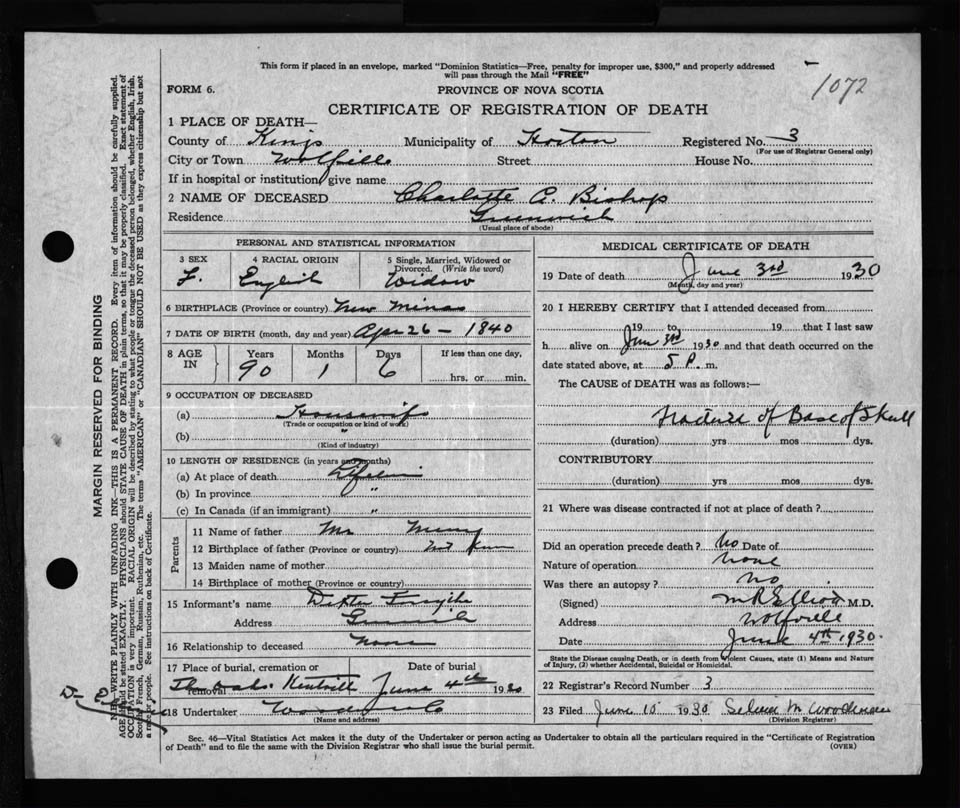 This form if placed in an envelope, marked "Dominion Statistics—Free, penalty for improper use, $300," and properly addressed
will pass through the Mail "FREE"
1072
FORM 6.
PROVINCE OF NOVA SCOTIA
CERTIFICATE OF REGISTRATION OF DEATH
1 PLACE OF DEATH—
County of Kings Municipality of Horton Registered No. 3
(For use of Registrar General only)
City or Town Wolfville Street House No.
If in hospital or institution, give name
2 NAME OF DECEASED Charlotte A. Bishop
Residence Greenwich
(Usual place of abode)
PERSONAL AND STATISTICAL INFORMATION
3 SEX 4 RACIAL ORIGIN 5 Single, Married, Widowed or
Divorced. (Write the word)
F. English Widow
6 BIRTHPLACE (Province or country) New Minas
7 DATE OF BIRTH (month, day and year) Apr 26 - 1840
8 AGE IN Years Months Days If less than one day,
90 1 6 hrs. or min.
9 OCCUPATION OF DECEASED
(a) Housewife
(Trade or occupation or kind of work)
(b) "
(Kind of industry)
10 LENGTH OF RESIDENCE (in years and months)
(a) At place of death
(b) In province "
(c) In Canada (if an immigrant) "
Parents
11 Name of father Mr
12 Birthplace of father (Province or country)
13 Maiden name of mother
14 Birthplace of mother (Province or country)
15 Informant's name Dexter Forsythe
Address Greenwich
16 Relationship to deceased None
17 Place of burial, cremation or removal Date of burial
The Oaks. Kentville June 4th 1930
18 Undertaker
(Name and address)
MEDICAL CERTIFICATE OF DEATH
19 Date of death June 3rd 1930
(Month, day and year)
20 I HEREBY CERTIFY that I attended deceased from
19 to 19 that I last saw
h alive on June 3rd 1930 and that death occurred on the
date stated above, at 5 P. m.
The CAUSE of DEATH was as follows:
Fracture of Base of Skull
(duration) yrs mos dys.
CONTRIBUTORY
(duration) yrs mos dys.
21 Where was disease contracted if not at place of death?
Did an operation precede death? No Date of
Nature of operation None
Was there an autopsy? no
(Signed) M R Elliott M.D.
Address Wolfville
Date June 4th 1930.
State the Disease causing Death, or in death from Violent Causes, state (1) Means and Nature
of Injury, (2) whether Accidental, Suicidal or Homicidal.
22 Registrar's Record Number 3
23 Filed June 10 1930
(Division Registrar)
Sec. 46—Vital Statistics Act makes it the duty of the Undertaker or person acting as Undertaker to obtain all the particulars required in the "Certificate of Registration
of Death" and to file the same with the Division Registrar who shall issue the burial permit. (OVER)
MARGIN RESERVED FOR BINDING
N.B.—WRITE PLAINLY WITH UNFADING INK—THIS IS A PERMANENT RECORD. Every item of information should be carefully supplied.
AGE should be stated EXACTLY. PHYSICIANS should STATE CAUSE OF DEATH in plain terms, so that it may be properly classified. Exact statement of
OCCUPATION is very important. RACIAL ORIGIN will be described by stating to what people or tongue the deceased person belonged, whether English, Irish,
Scotch, French, German, Russian, Ruthenian, etc. The terms "AMERICAN" or "CANADIAN" SHOULD NOT BE USED as they express citizenship but not
a race or people. See instructions on back of Certificate.